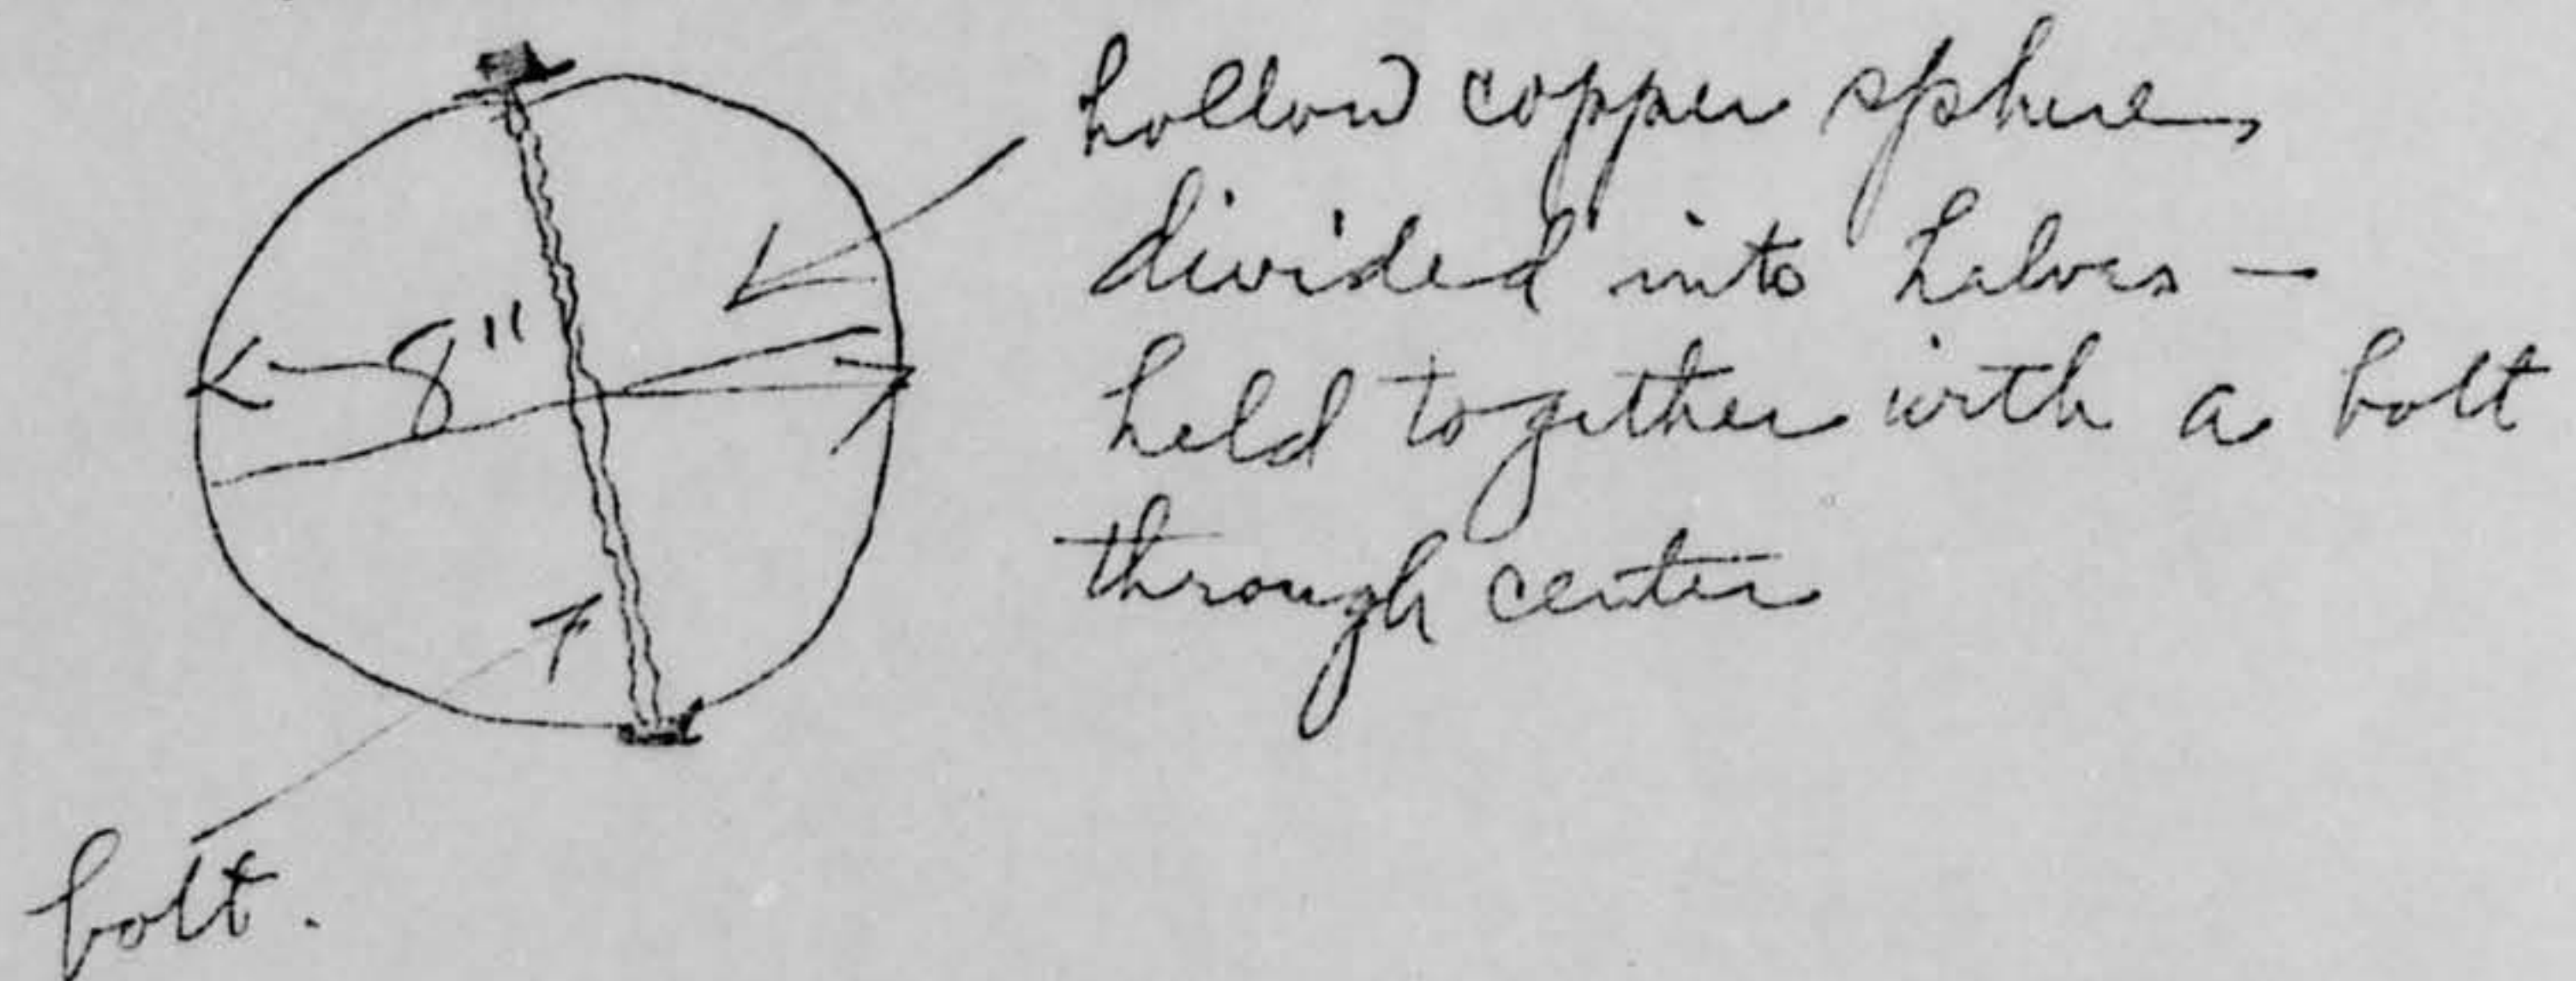 8"
hollow copper sphere,
divided into halves —
held together with a bolt
through center
bolt.